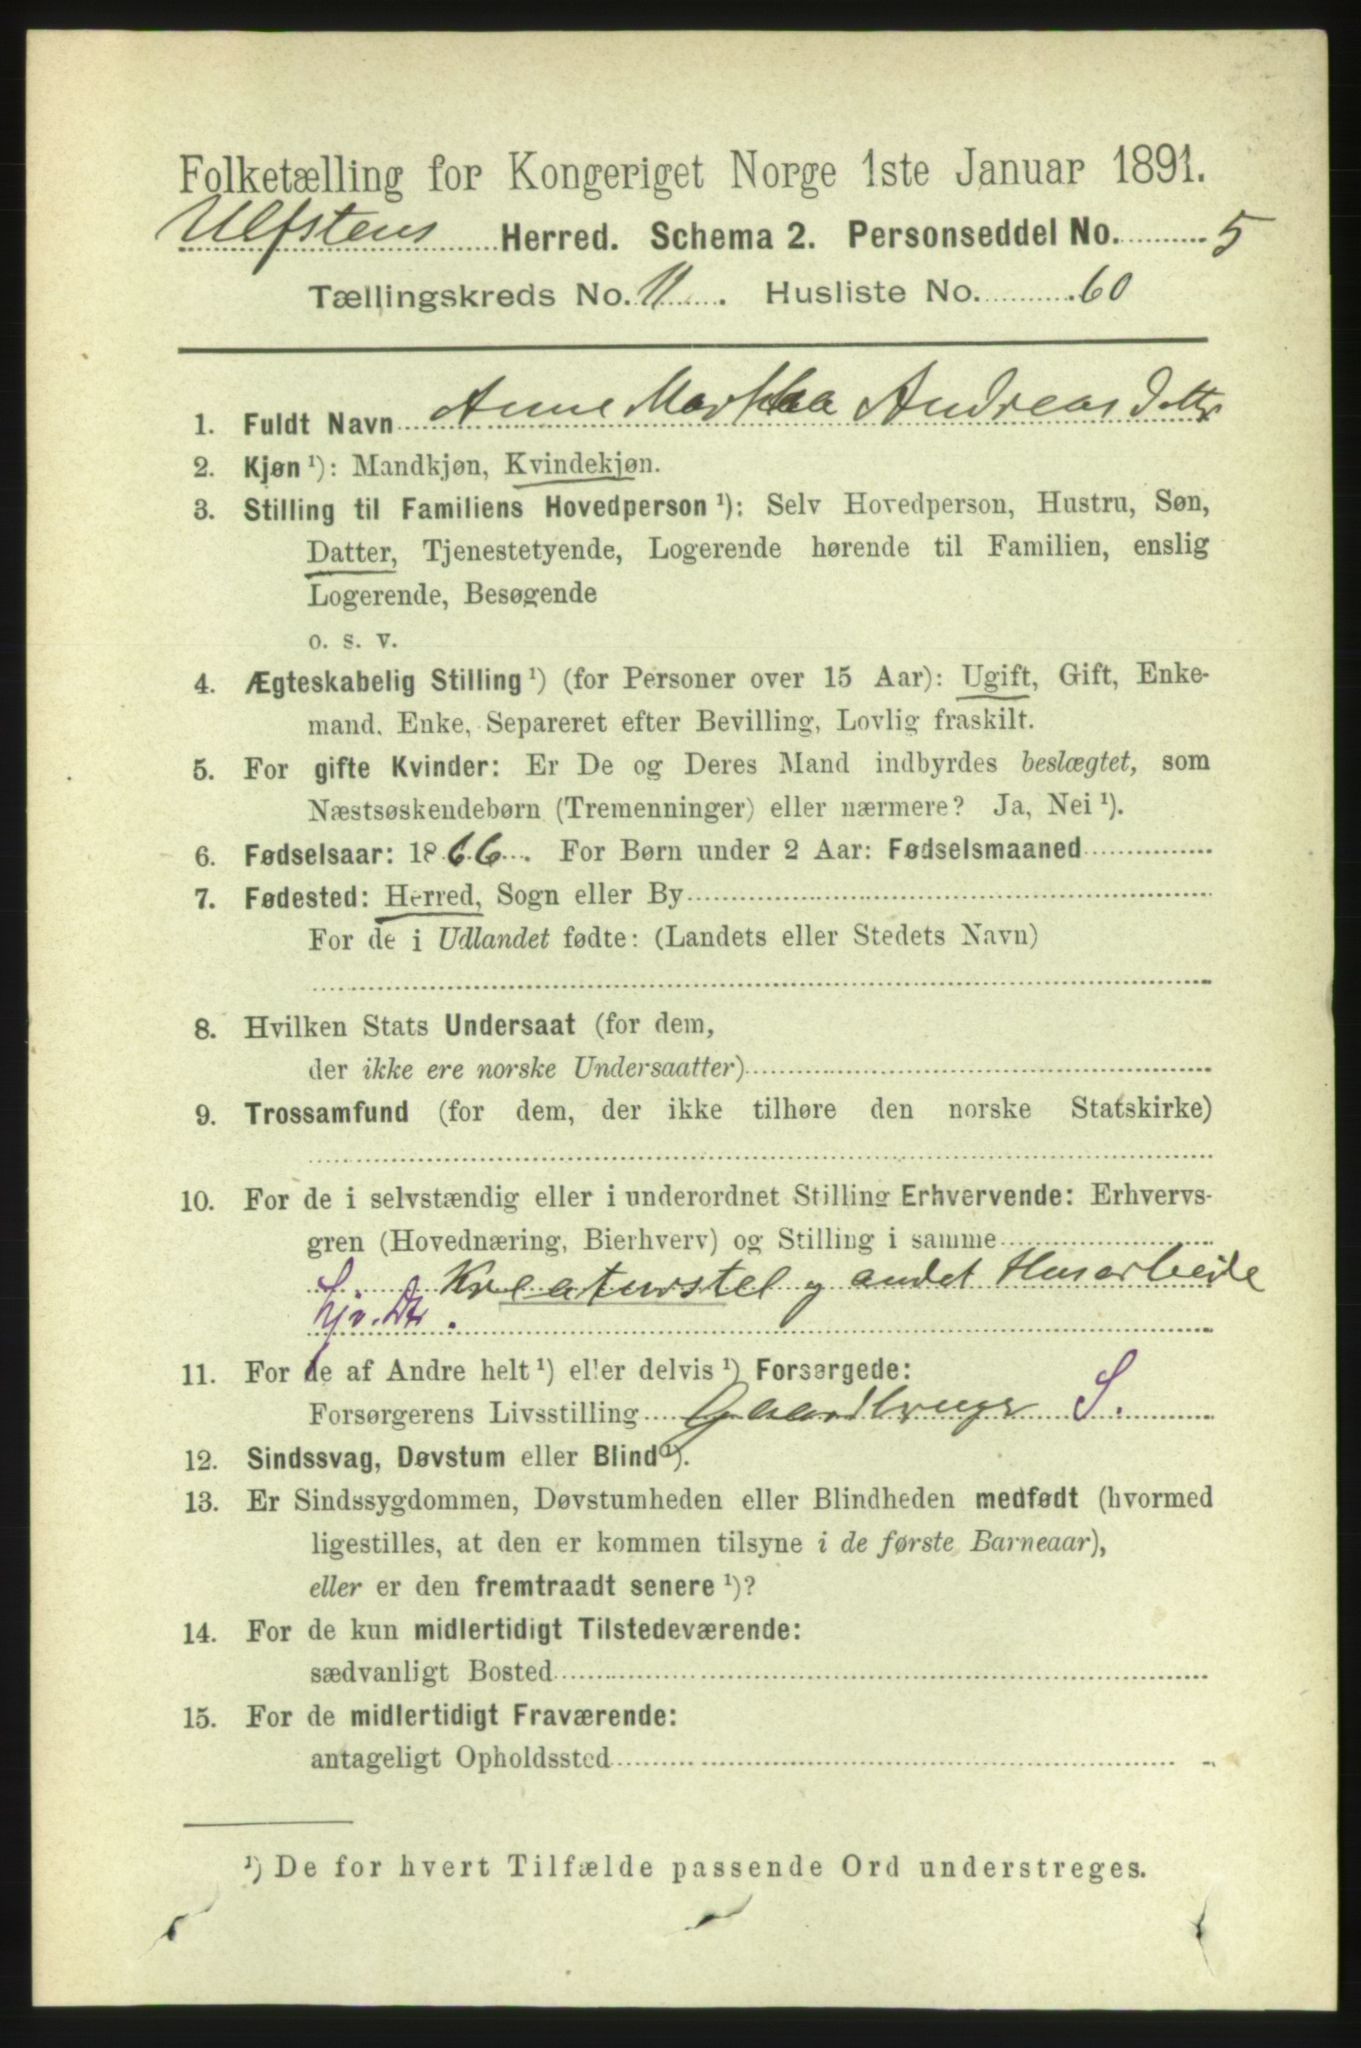 Folketælling for Kongeriget Norge 1ste Januar 1891.
Ulfstens Herred. Schema 2. Personseddel No. 5
Tællingskreds No. 11. Husliste No. 60
1. Fuldt Navn Anne Martha Andreasdttr
2. Kjøn ¹): Mandkjøn, Kvindekjøn.
3. Stilling til Familiens Hovedperson ¹): Selv Hovedperson, Hustru, Søn,
Datter, Tjenestetyende, Logerende hørende til Familien, enslig
Logerende, Besøgende
o. s. v.
4. Ægteskabelig Stilling ¹) (for Personer over 15 Aar): Ugift, Gift, Enke-
mand, Enke, Separeret efter Bevilling, Lovlig fraskilt.
5. For gifte Kvinder: Er De og Deres Mand indbyrdes beslægtet, som
Næstsøskendebørn (Tremenninger) eller nærmere? Ja, Nei ¹).
6. Fødselsaar: 1866. For Børn under 2 Aar: Fødselsmaaned
7. Fødested: Herred, Sogn eller By
For de i Udlandet fødte: (Landets eller Stedets Navn)
8. Hvilken Stats Undersaat (for dem,
der ikke ere norske Undersaatter)
9. Trossamfund (for dem, der ikke tilhøre den norske Statskirke)
10. For de i selvstændig eller i underordnet Stilling Erhvervende: Erhvervs-
gren (Hovednæring, Bierhverv) og Stilling i samme
Kreaturstel og andet Husarbeide
11. For de af Andre helt ¹) eller delvis ¹) Forsørgede:
Forsørgerens Livsstilling Gaardbruger S.
12. Sindssvag, Døvstum eller Blind ¹).
13. Er Sindssygdommen, Døvstumheden eller Blindheden medfødt (hvormed
ligestilles, at den er kommen tilsyne i de første Barneaar),
eller er den fremtraadt senere ¹)?
14. For de kun midlertidigt Tilstedeværende:
sædvanligt Bosted
15. For de midlertidigt Fraværende:
antageligt Opholdssted
¹) De for hvert Tilfælde passende Ord understreges.